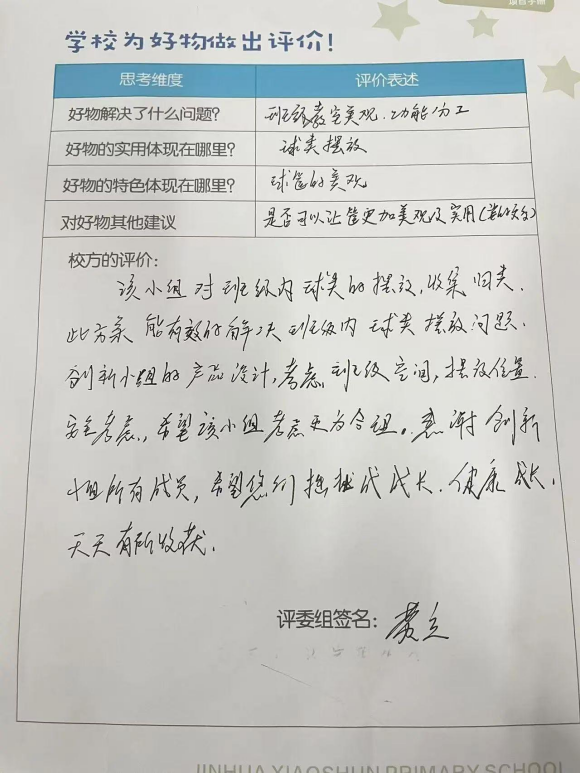 项目手册
学校为好物做出评价!
思考维度 评价表述
好物解决了什么问题? 班级教室美观、功能分工
好物的实用体现在哪里? 球类摆放
好物的特色体现在哪里? 球筐的美观
对好物其他建议 是否可以让筐更加美观及实用
校方的评价:
该小组对班级内球类的摆放,收集归类.
此方案能有效的解决班级内球类摆放问题.
创新小组的产品设计,考虑班级空间,摆放位置.
安全考虑,希望该小组考虑更为合理。感谢创新
小组所有成员,希望您们 成长.健康成长.
天天有所收获.
评委组签名:
JINHUA XIAOSHUN PRIMARY SCHOOL